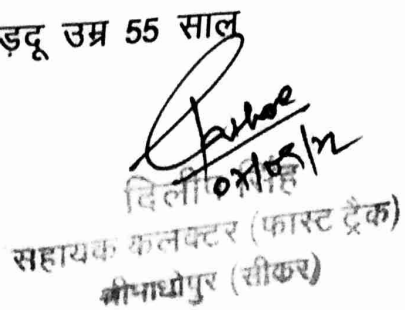 ड़दू उम्र 55 साल
दिलीप सिंह
सहायक कलक्टर (फास्ट ट्रैक)
श्रीमाधोपुर (सीकर)